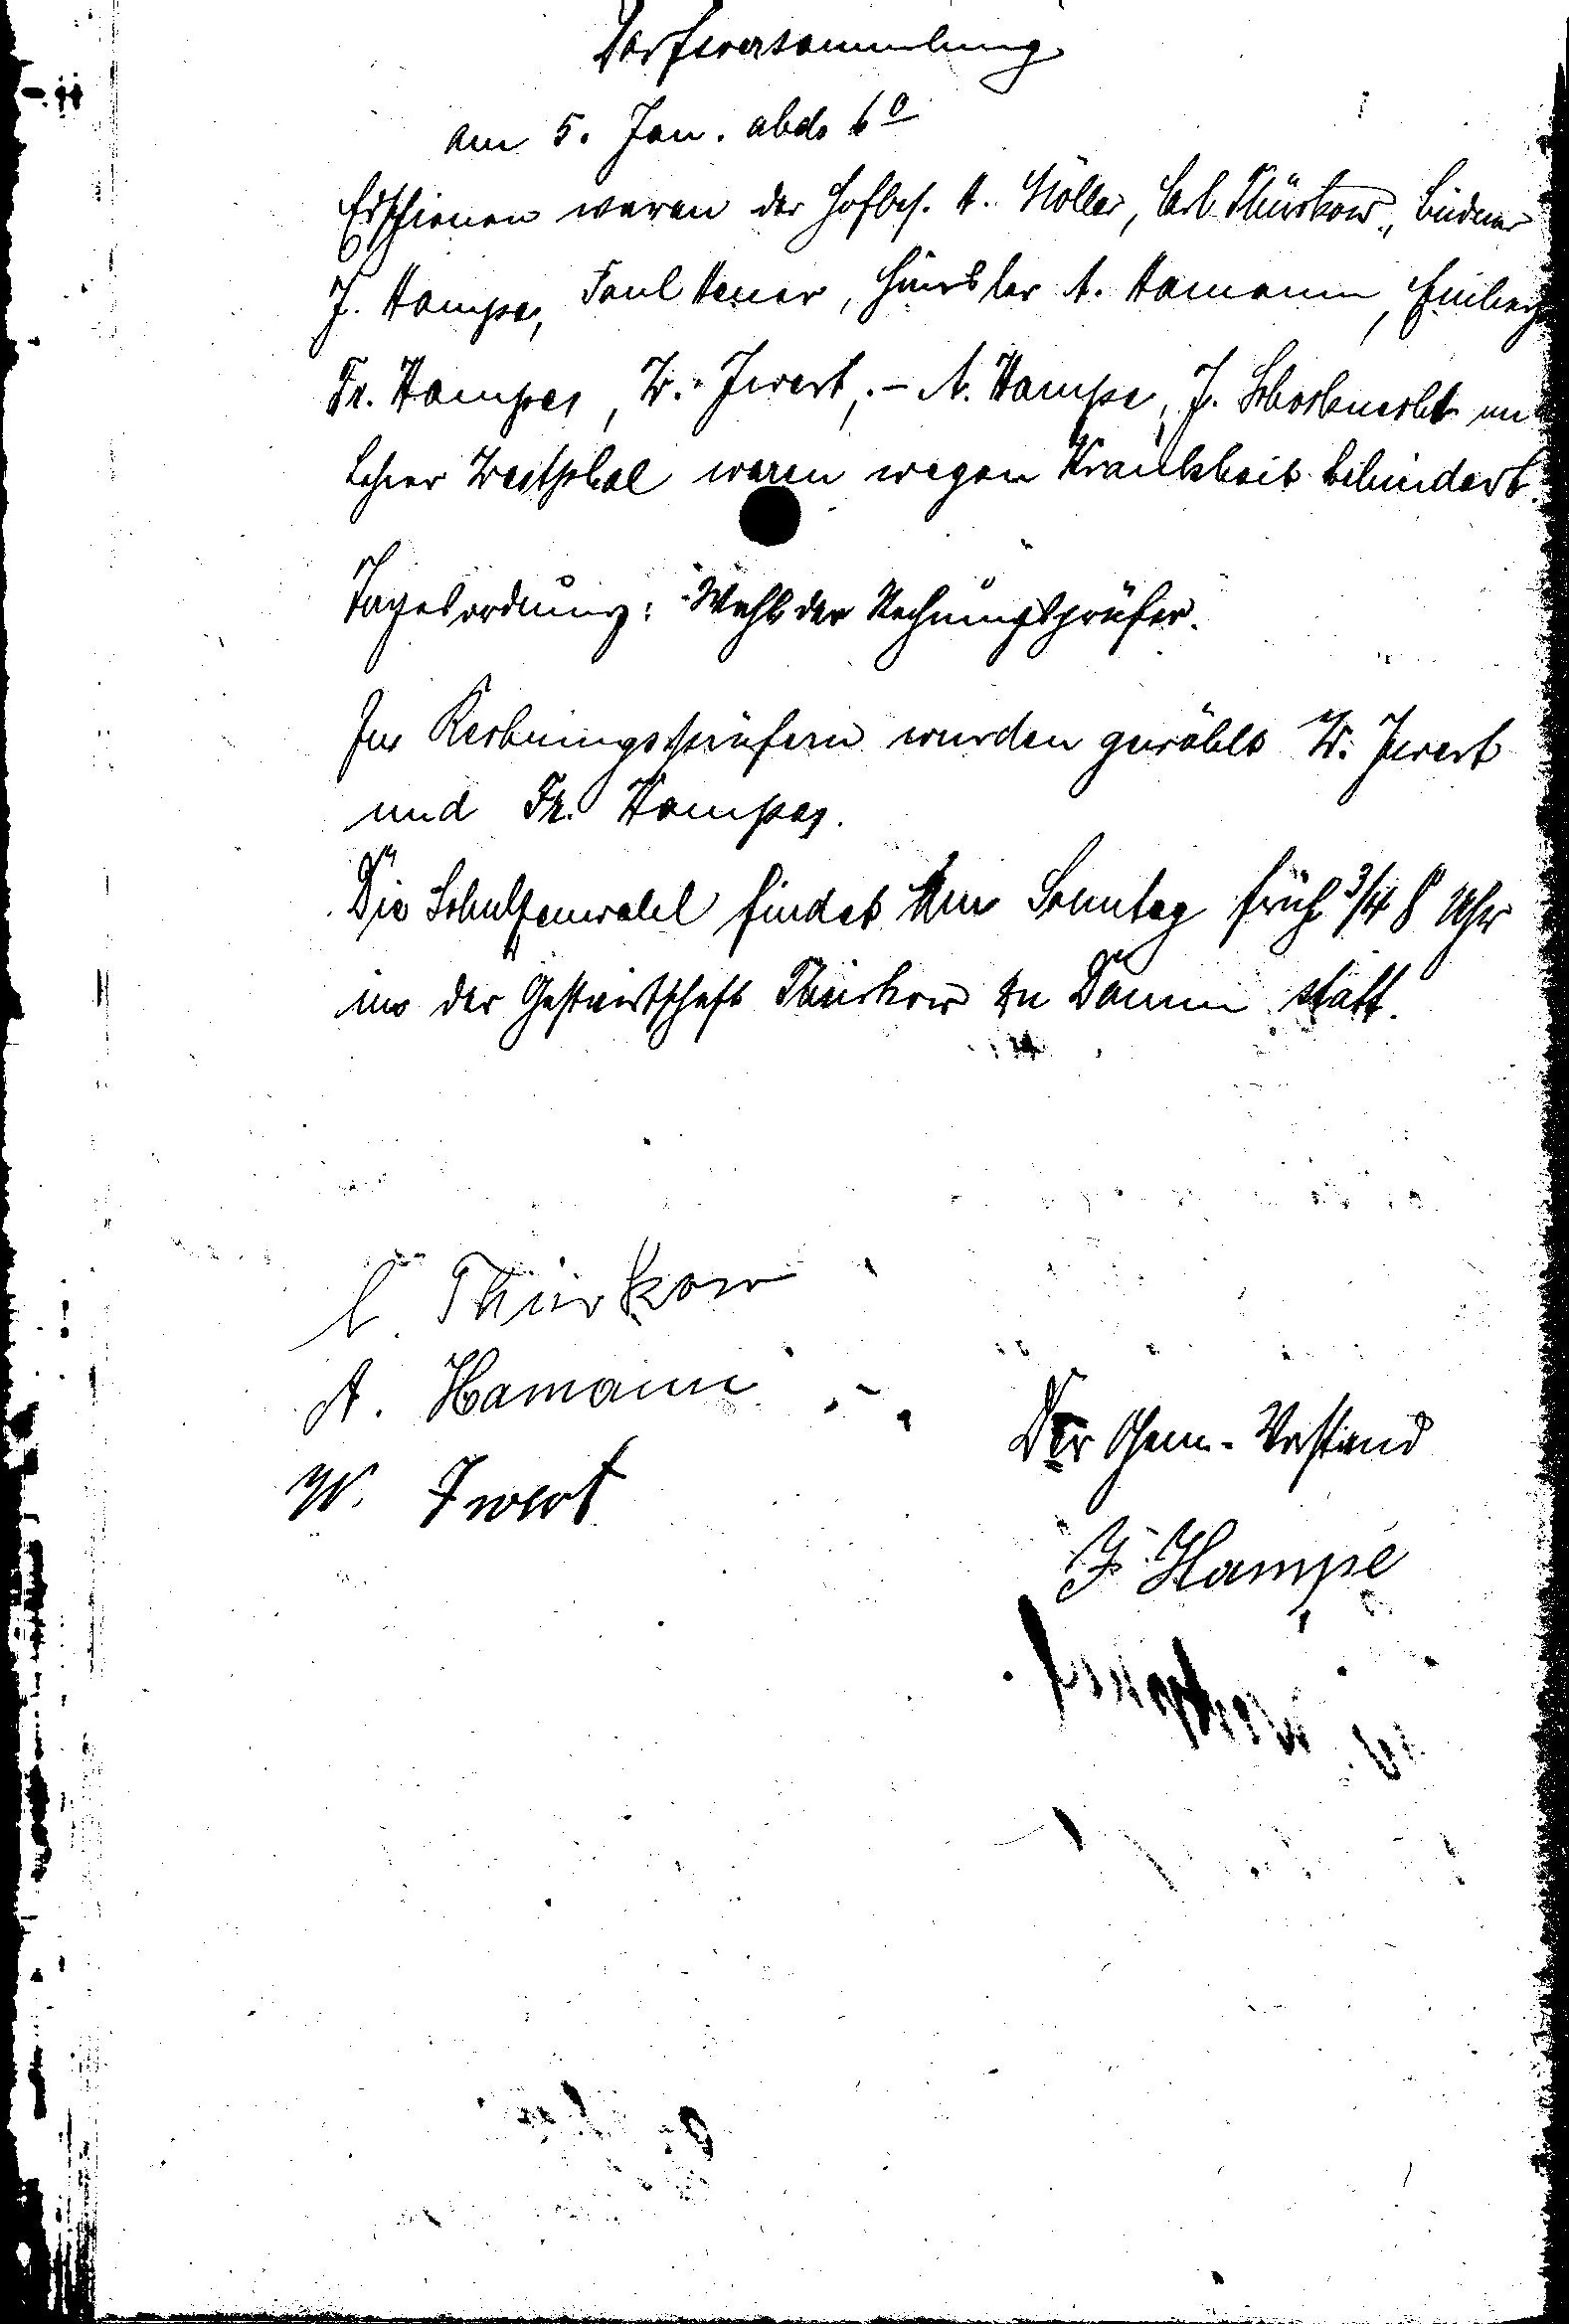 Dorfsversammlung
am 5. Jan. abds 6°
Erschienen waren der Hofbes. A. Möller, Carl Thürkow, Büdner
J. Hampe, Paul Hener, Häusler A. Hamann,
Fr. Hampe, W. Iwert, .- A. Hampe, J. Schoknecht un
Lehrer Westphal waren wegen Krankheit behindert.
Tagesordnung: Wahl der Rechnungsprüfer.
Zu Rechnungsprüfern wurden gewählt W. Iwert
und Fr. Hampe.
Die Schulzenwahl findet am Sonntag früh 3/4 8 Uhr
in der Gastwirtschaft Thürkow zu Damm statt.
C. Thürkow
A. Hamann
W. Iwert
Der Gem.-Vorstand
J. Hampe